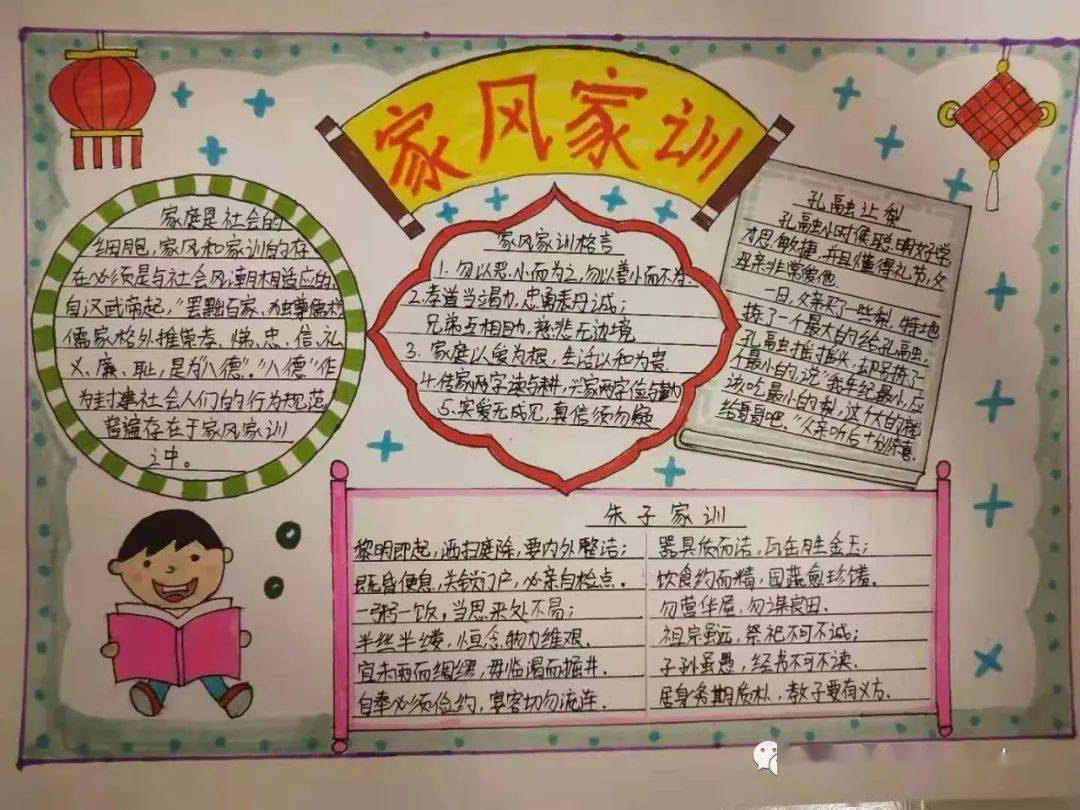 家风家训
家庭是社会的
细胞,家风和家训的存
在必须是与社会风潮相适应的,
自汉武帝起,“罢黜百家、独尊儒术
儒家格外推崇孝、悌、忠、信、礼
义、廉、耻,是为“八德”。“八德”作
为封建社会人们的行为规范
普遍存在于家风家训
之中。
家风家训格言
1. 勿以恶小而为之,勿以善小而不为.
2.孝道当竭力,忠勇表丹诚;
兄弟互相助,慈悲无边境
3. 家庭以爱为根,生活以和为贵.
4.传家两字读与耕,兴家两字位与勤
5.实爱无成见,真信须勿疑
孔融让梨
孔融小时候聪明好学
才思敏捷,并且懂得礼节,父
母亲非常爱他.
一日,父亲买了一些梨,特地
拣了一个最大的给孔融,
孔融摇摇头,却另拣了一
个最小的,说“我年纪最小,应
该吃最小的梨,这个大的
给哥哥吧.”父亲听后十分惊喜.
朱子家训
黎明即起,洒扫庭除,要内外整洁;
既昏便息,关锁门户,必亲自检点.
一粥一饭,当思来处不易;
半丝半缕,恒念物力维艰.
宜未雨而绸缪,毋临渴而掘井.
自奉必须俭约,宴客切勿流连.
器具质而洁,瓦缶胜金玉;
饮食约而精,园蔬愈珍馐.
勿营华屋,勿谋良田.
祖宗虽远,祭祀不可不诚;
子孙虽愚,经书不可不读.
居身务期质朴,教子要有义方.